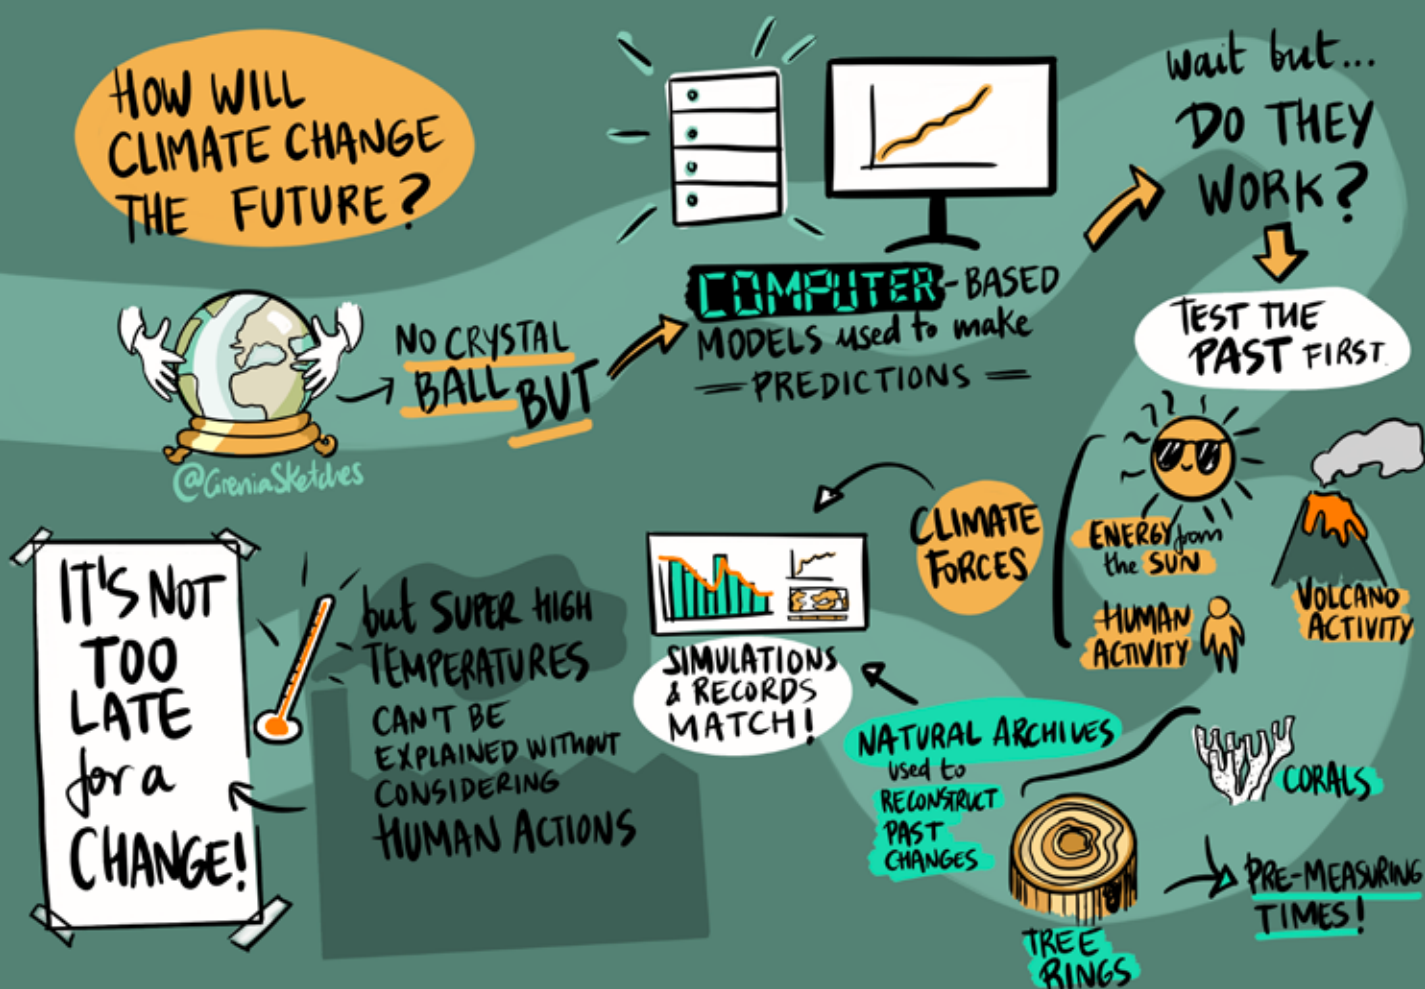 HOW WILL
CLIMATE CHANGE
THE FUTURE?
@CireniaSketches
NO CRYSTAL
BALL BUT
COMPUTER-BASED
MODELS used to make
PREDICTIONS
wait but...
DO THEY
WORK?
TEST THE
PAST FIRST.
ENERGY from
the SUN
VOLCANO
ACTIVITY
HUMAN
ACTIVITY
CLIMATE
FORCES
NATURAL ARCHIVES
used to
RECONSTRUCT
PAST
CHANGES
CORALS
TREE
RINGS
PRE-MEASURING
TIMES!
SIMULATIONS
& RECORDS
MATCH!
but SUPER HIGH
TEMPERATURES
CAN'T BE
EXPLAINED WITHOUT
CONSIDERING
HUMAN ACTIONS
IT'S NOT
TOO
LATE
for a
CHANGE!